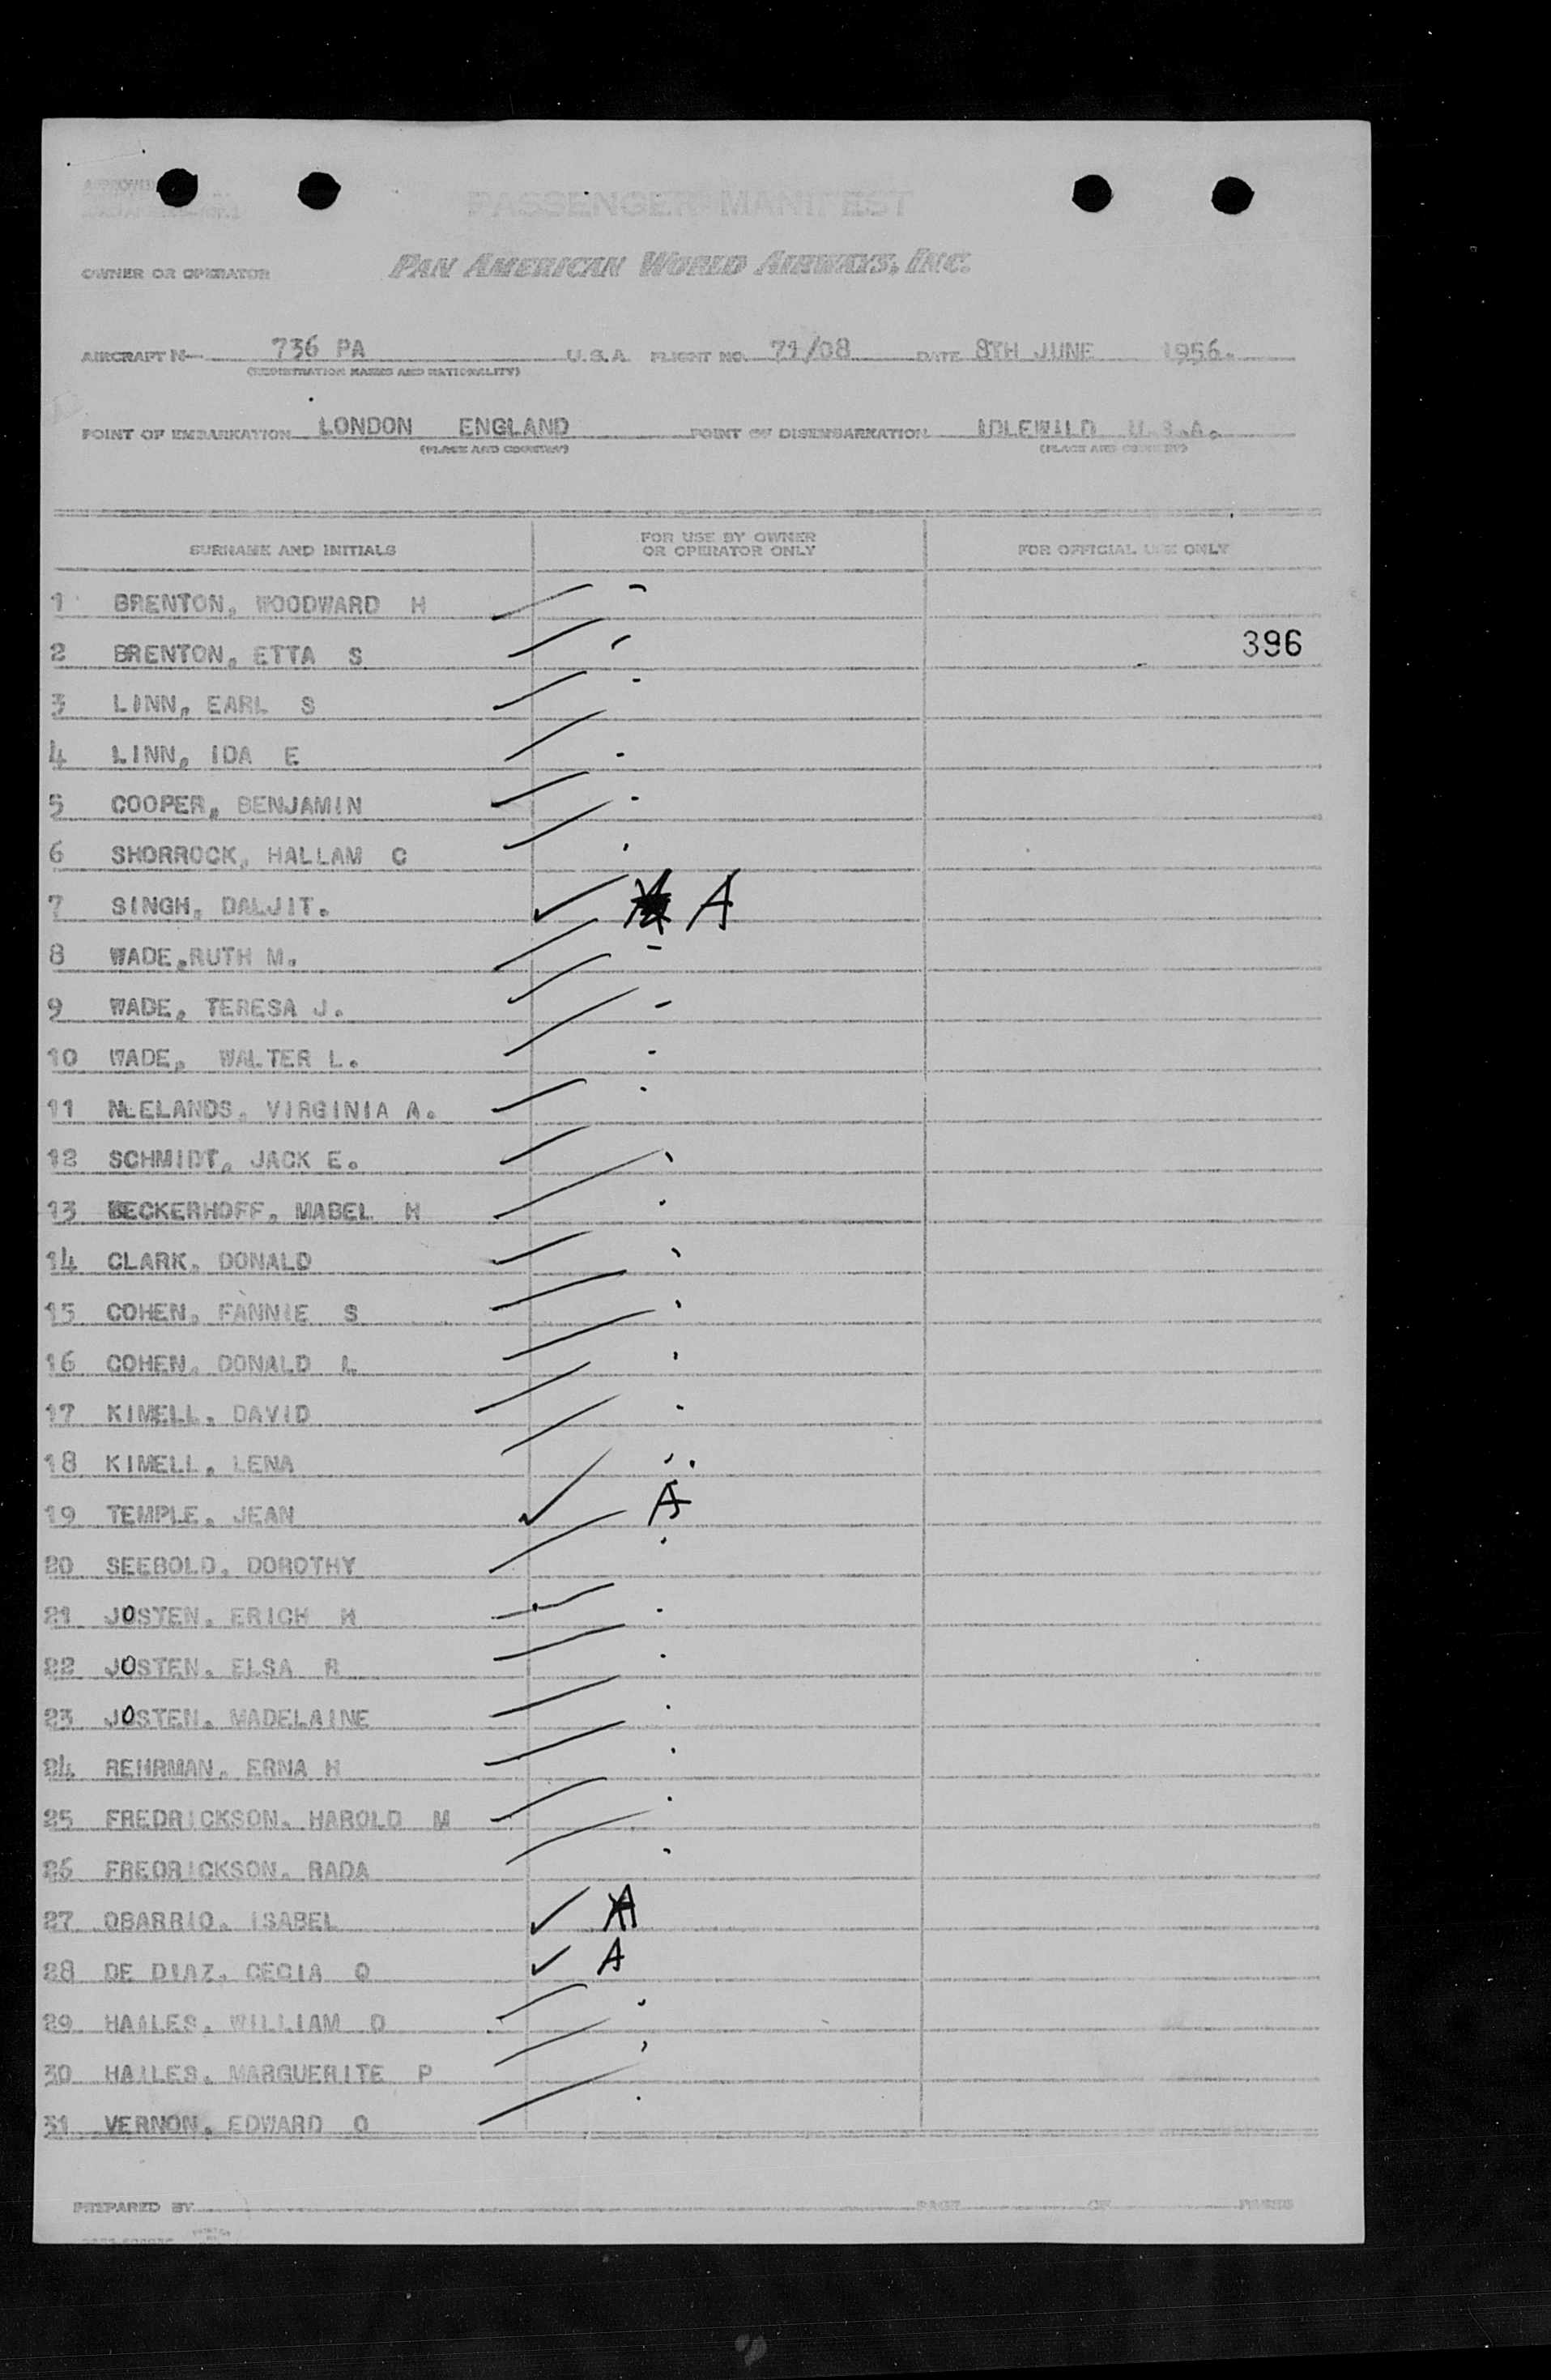 PASSENGER MANIFEST
OWNER OR OPERATOR PAN AMERICAN WORLD AIRWAYS, INC.
AIRCRAFT N- 736 PA U.S.A FLIGHT NO. 71/08 DATE 8TH JUNE 1956.
(REGISTRATION MARKS AND NATIONALITY)
POINT OF EMBARKATION LONDON ENGLAND POINT OF DISEMBARKATION IDLEWILD U.S.A.
(PLACE AND COUNTRY) (PLACE AND COUNTRY)
SURNAME AND INITIALS FOR USE BY OWNER OR OPERATOR ONLY FOR OFFICIAL USE ONLY
1 BRENTON, WOODWARD H
2 BRENTON, ETTA S 396
3 LINN, EARL S
4 LINN, IDA E
5 COOPER, BENJAMIN
6 SHORROCK, HALLAM C
7 SINGH, DALJIT. A
8 WADE,RUTH M.
9 WADE, TERESA J.
10 WADE, WALTER L.
11 NEELANDS, VIRGINIA A.
12 SCHMIDT, JACK E.
13 BECKERHOFF, MABEL H
14 CLARK, DONALD
15 COHEN, FANNIE S
16 COHEN, DONALD L
17 KIMELL, DAVID
18 KIMELL, LENA
19 TEMPLE, JEAN A
20 SEEBOLD, DOROTHY
21 JOSTEN, ERICH H
22 JOSTEN, ELSA R
23 JOSTEN, MADELAINE
24 REHRMAN, ERNA H
25 FREDRICKSON, HAROLD M
26 FREDRICKSON, RADA
27 OBARRIO, ISABEL A
28 DE DIAZ, CECIA O A
29 HAILES, WILLIAM D
30 HAILES, MARGUERITE P
31 VERNON, EDWARD O
PREPARED BY PAGE OF PAGES